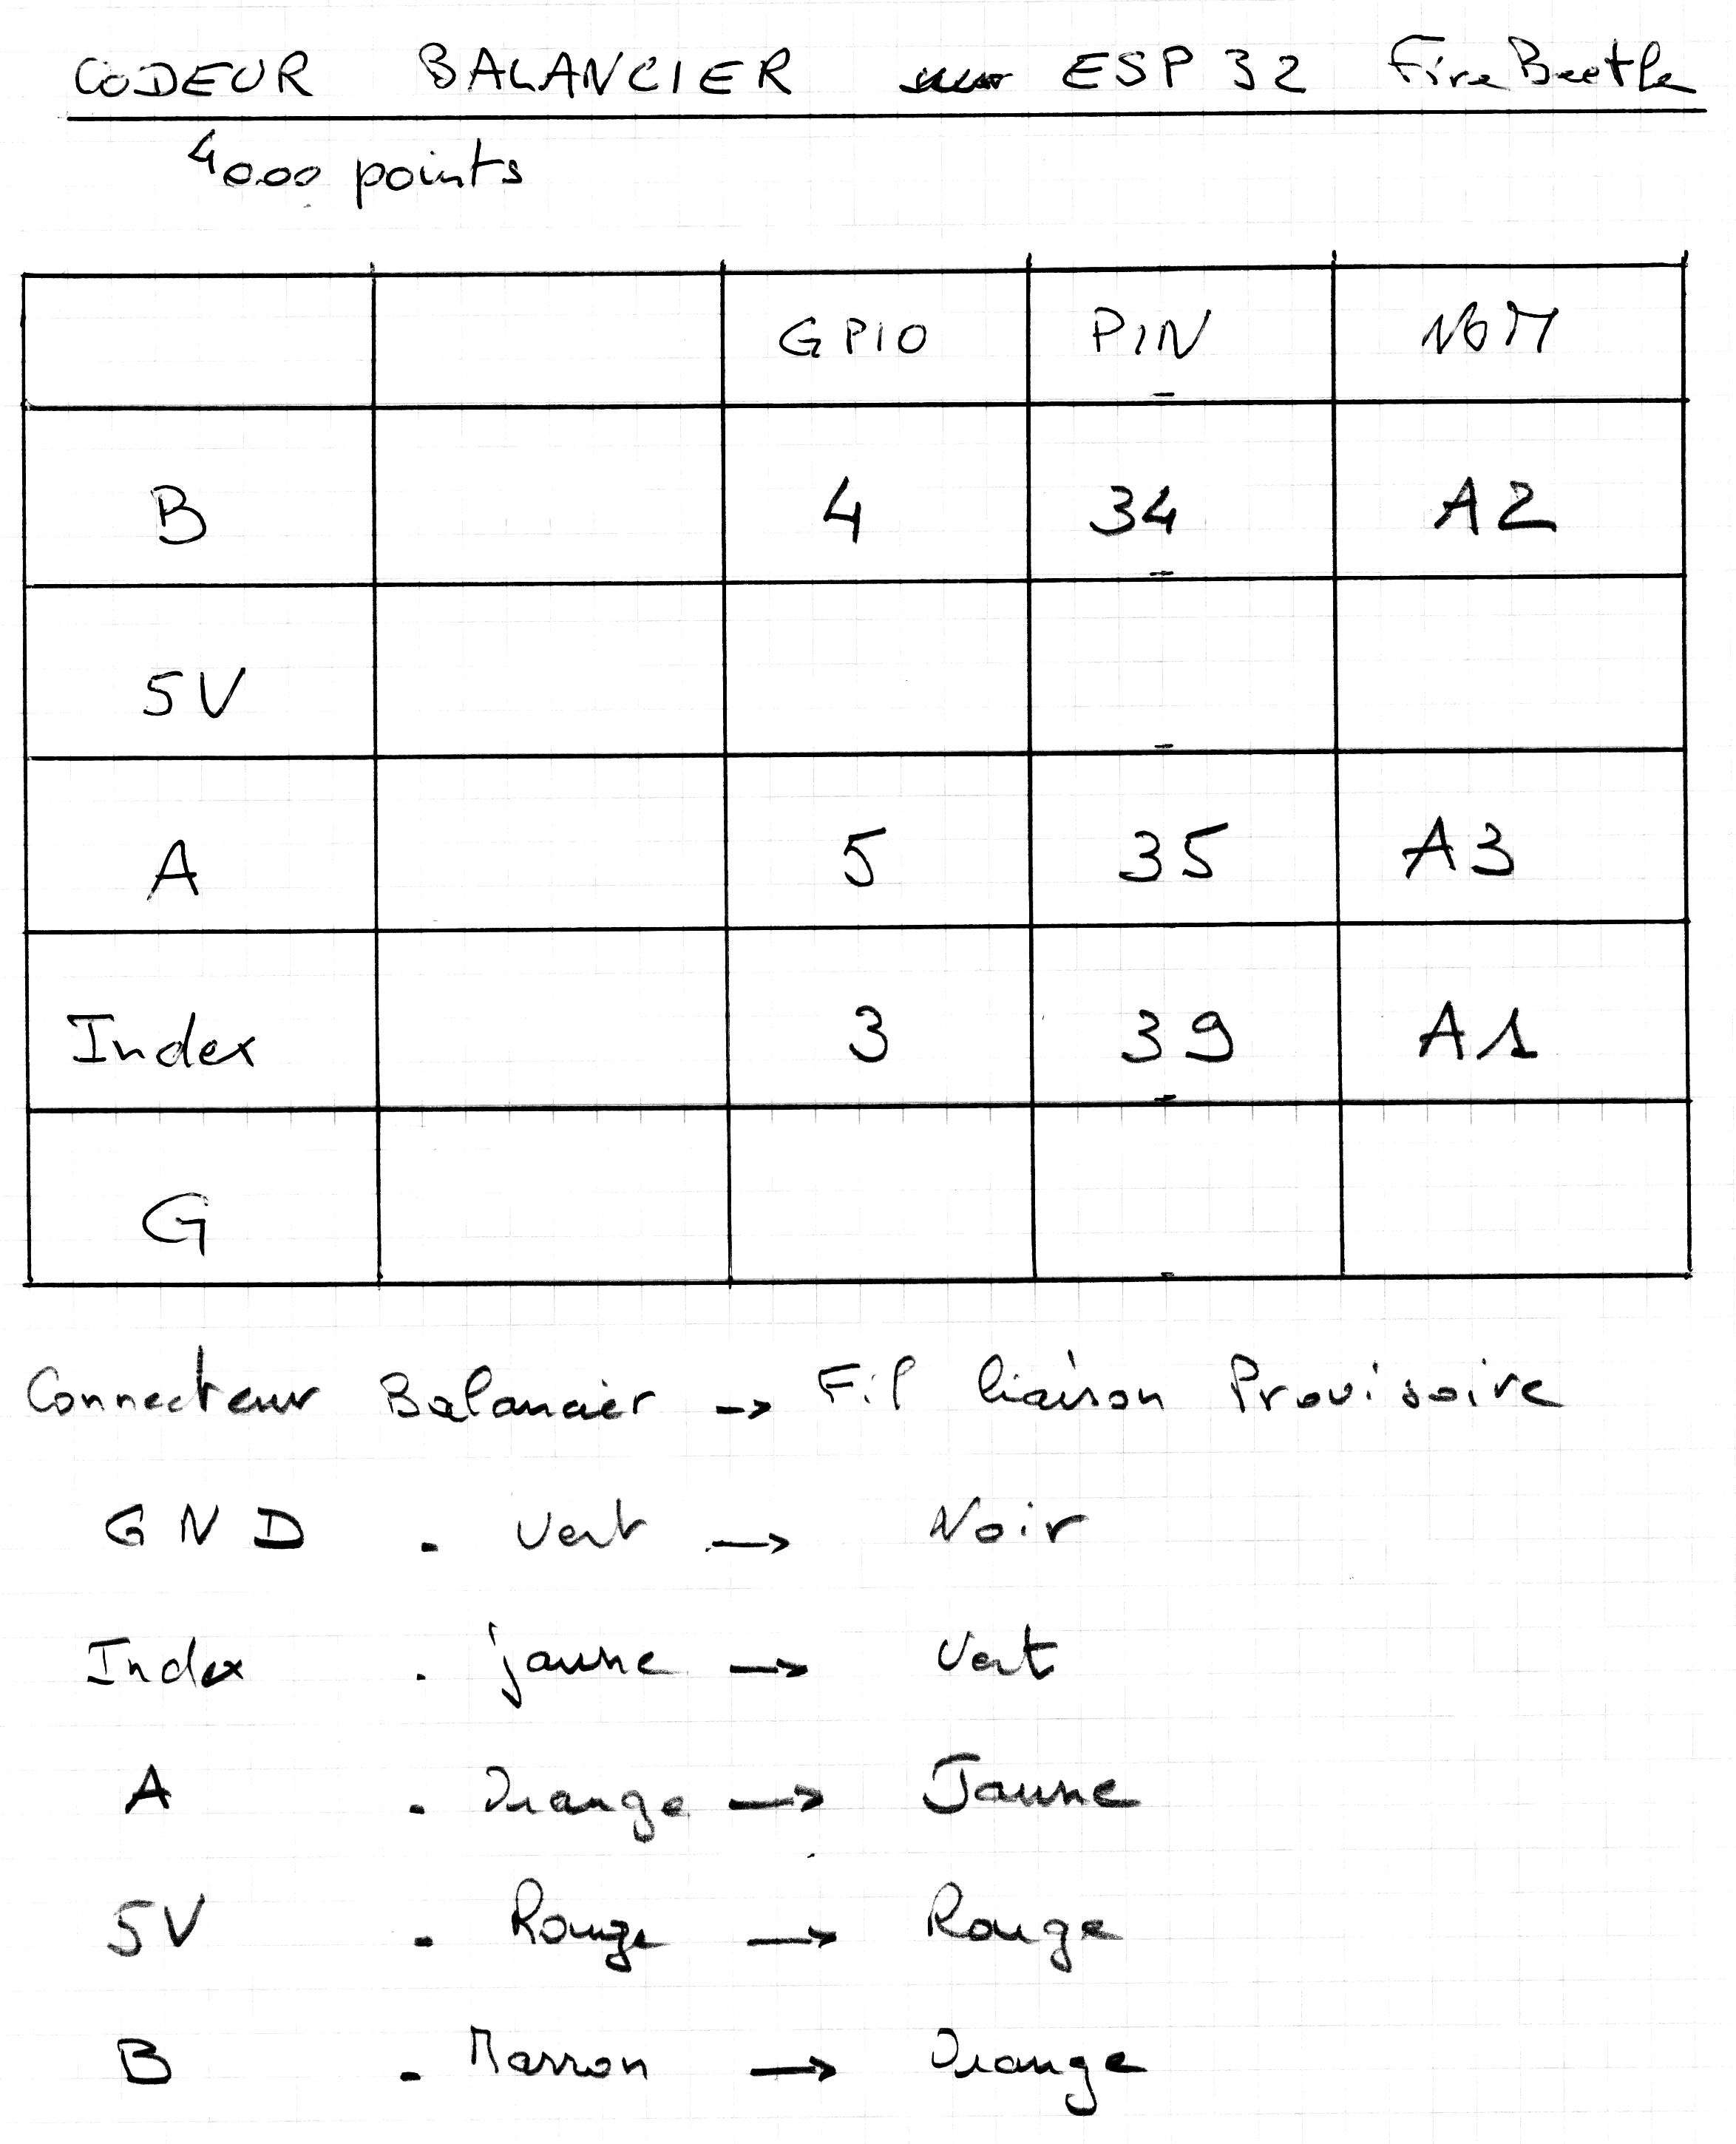 CODEUR BALANCIER sur ESP32 FireBeetle
4000 points
GPIO PIN NOM
B 4 34 A2
5V
A 5 35 A3
Index 3 39 A1
G
Connecteur Balancier -> Fil liaison Provisoire
GND . Vert -> Noir
Index . jaune -> Vert
A . Orange -> Jaune
5V . Rouge -> Rouge
B . Marron -> Orange